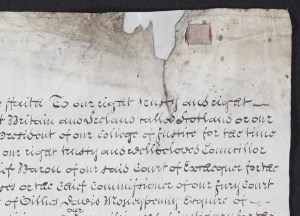 ffaith To our right trusty and right
t Britain and Ireland called Scotland or our
President of our College of Justice for the time
our right trusty and welbeloved Councillor
ief Baron of our said Court of Exchequer for the
es or the Chief Commissioner of our Jury Court
of Gillies David Monypenny Esquire of
our